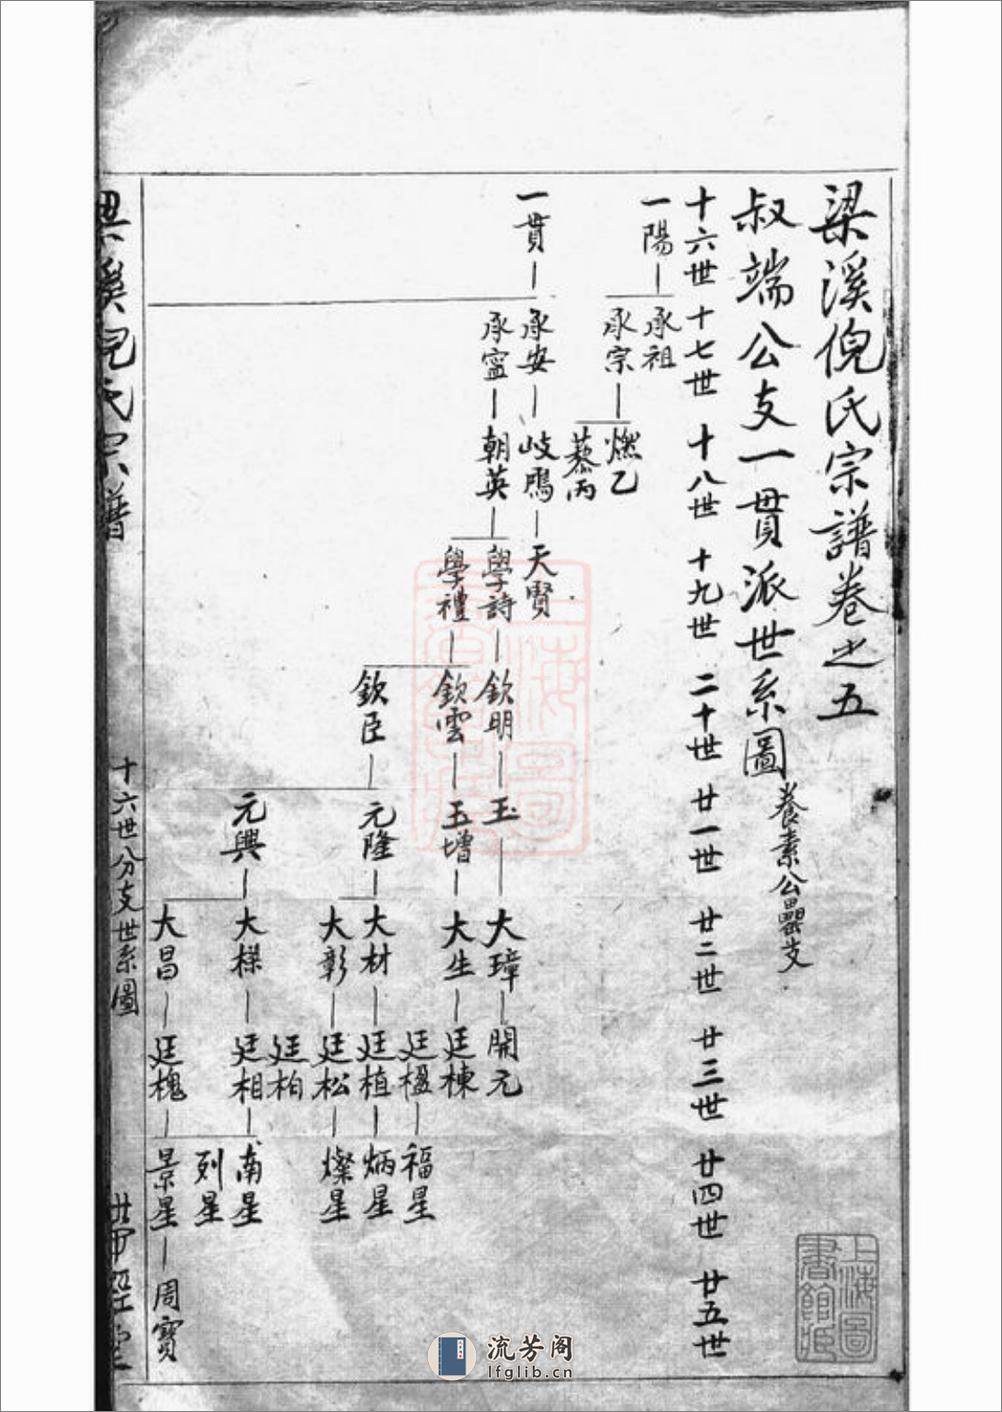 梁溪倪氏宗譜卷之五
叔端公支一貫派世系圖 養素公壘支
十六世 十七世 十八世 十九世 二十世 廿一世 廿二世 廿三世 廿四世 廿五世
一陽 承祖
承宗 燃乙
藜丙
一貫 承安 岐鳴 天賢
承寧 朝英 學詩 欽明 玉 大璋 開元
學禮 欽雲 玉增 大生 廷棟
廷楹 福星
欽臣 元隆 大材 廷植 炳星
大彰 廷松 燦星
廷柏
元興 大樑 廷相 南星
列星
大昌 廷槐 景星 周寶
梁溪倪氏宗譜
十六世分支世系圖
世甲經堂
上海圖書館藏
上海圖書館藏
流芳阁
lfglib.cn